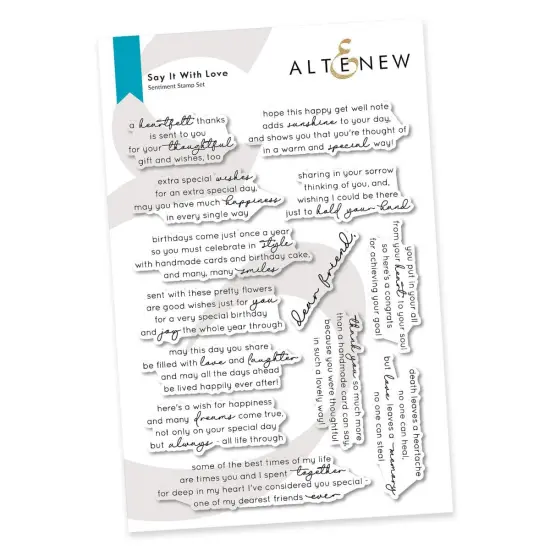 Say It With Love
Sentiment Stamp Set
ALTENEW
a heartfelt thanks
is sent to you
for your thoughtful
gift and wishes, too
hope this happy get well note
adds sunshine to your day,
and shows you that you're thought of
in a warm and special way!
extra special wishes
for an extra special day,
may you have much happiness
in every single way
sharing in your sorrow
thinking of you, and,
wishing I could be there
just to hold your hand
birthdays come just once a year
so you must celebrate in style
with handmade cards and birthday cake,
and many, many smiles
dear friend,
you put in your all
from your heart to your soul
so here's a congrats
for achieving your goal!
sent with these pretty flowers
are good wishes just for you
for a very special birthday
and joy the whole year through
thank you so much more
than a handmade card can say,
because you were thoughtful
in such a lovely way!
may this day you share
be filled with love and laughter
and may all the days ahead
be lived happily ever after!
death leaves a heartache
no one can heal,
but love leaves a memory
no one can steal
here's a wish for happiness
and many dreams come true,
not only on your special day
but always - all life through
some of the best times of my life
are times you and I spent together
for deep in my heart I've considered you special
one of my dearest friends ever